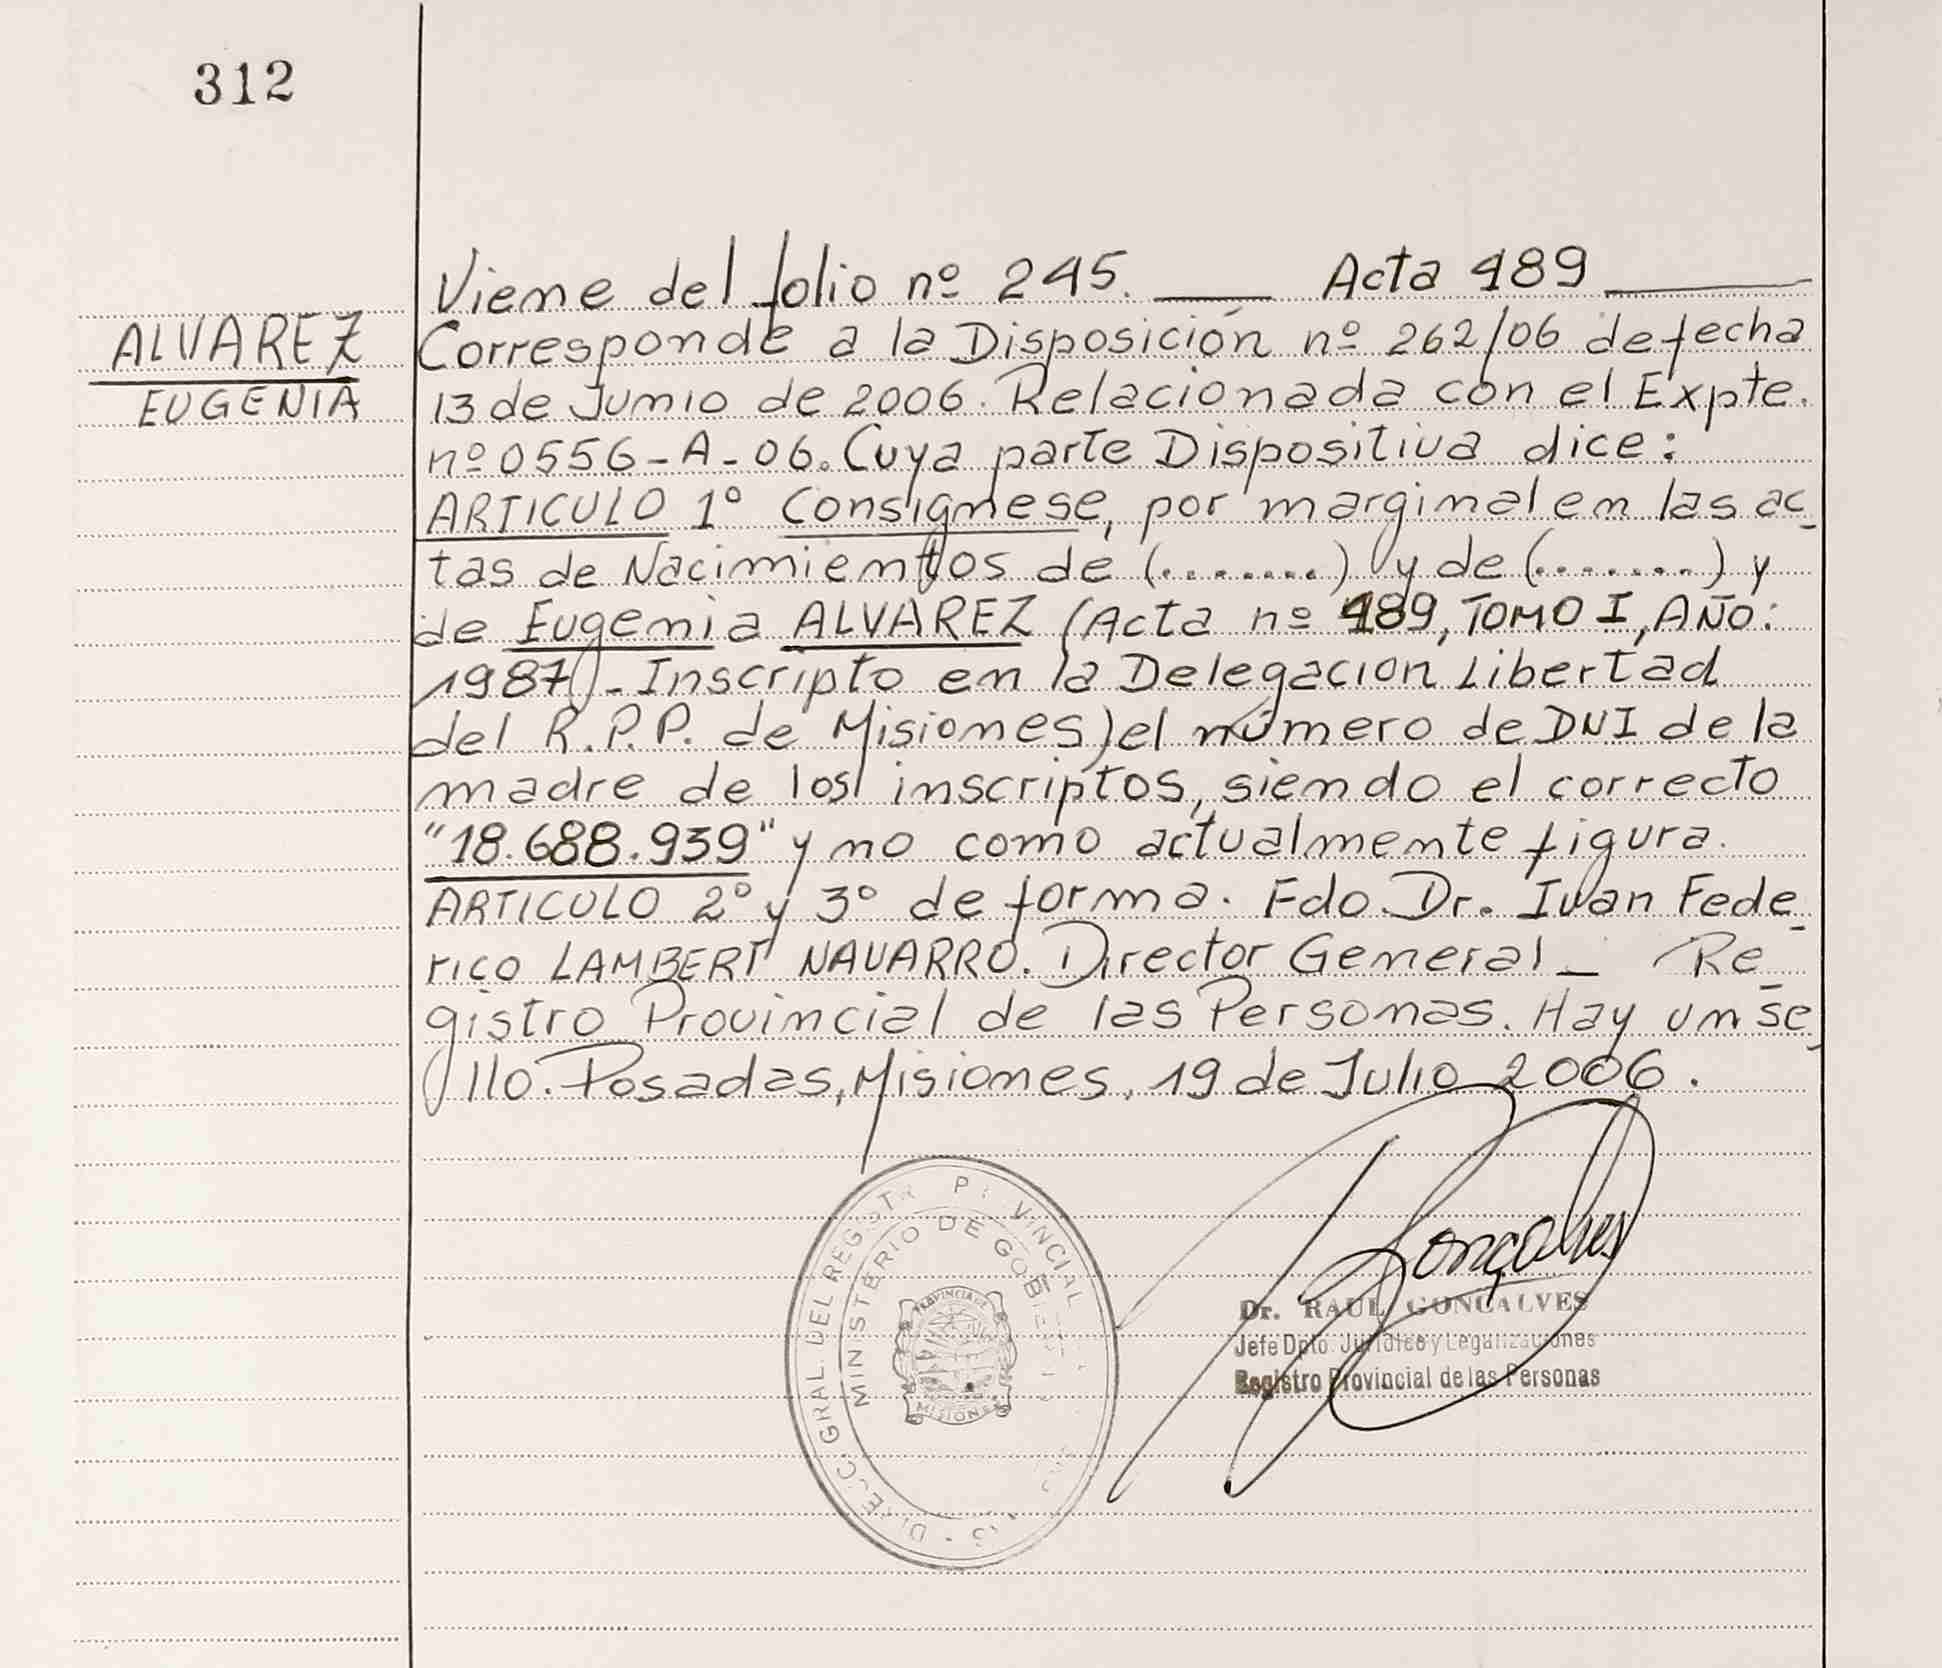 312
Viene del folio nº 245. ___ Acta 489 ___
ALVAREZ
EUGENIA
Corresponde a la Disposición nº 262/06 de fecha
13 de Junio de 2006. Relacionada con el Expte.
nº 0556-A-06. Cuya parte Dispositiva dice:
ARTICULO 1º Consignese, por marginal en las ac_
tas de Nacimientos de (........) y de (........) y
de Eugenia ALVAREZ (Acta nº 489, TOMO I, AÑO:
1987) - Inscripto en la Delegacion Libertad
del R.P.P. de Misiones) el número de DNI de la
madre de los inscriptos, siendo el correcto
"18.688.939" y no como actualmente figura.
ARTICULO 2º y 3º de forma. Fdo. Dr. Ivan Fede_
rico LAMBERT NAVARRO. Director General _ Re_
gistro Provincial de las Personas. Hay un se_
llo. Posadas, Misiones, 19 de Julio 2006.
DIRECC. GRAL. DEL REGISTR PROVINCIAL
MINISTERIO DE GOBIERNO
PROVINCIA DE
MISIONES
Gonçalves
Dr. RAUL GONCALVES
Jefe Dpto. Jurídico y Legalizaciones
Registro Provincial de las Personas